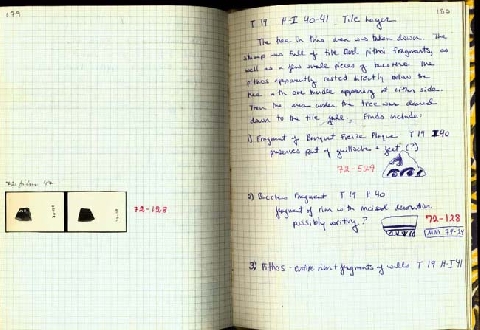 179
72-128
180
T 19 H-I 40-41 Tile Layer
The tree in this area was taken down. The
stump was full of tile and pithos fragments, as
well as a few small pieces of bucchero. The
pithos apparently rested directly below the
tree with one handle appearing at either side.
Then the area under the tree was cleared
down to the tile . Finds include:
1) Fragment of Banquet Frieze Plaque T 19 I 40
preserves part of guilloche + feet (?)
72-529
2) Bucchero Fragment T 19 I 40
fragment of rim with incised decoration,
possibly writing?
72-128
3) Pithos - rim fragments of walls T 19 H-I 41